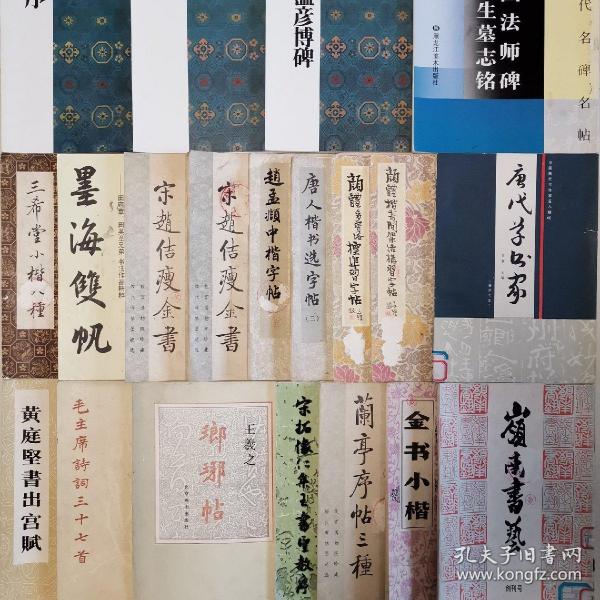 序
温彦博碑
法师碑
生墓志铭
黑龙江美术出版社
代名碑名帖
三希堂小楷八種
墨海雙帆
宋趙佶瘦金書
宋趙佶瘦金書
趙孟頫中楷字帖
唐人楷书选字帖
(二)
顏體
標準習字帖
顏體楷書間架結構習字帖
唐代草书家
黃庭堅書出宮賦
毛主席詩詞三十七首
王羲之
瑯琊帖
宋拓懷仁集王書聖教序
蘭亭序帖三種
金书小楷
嶺南書藝
创刊号
孔夫子旧书网
www.kongfz.com